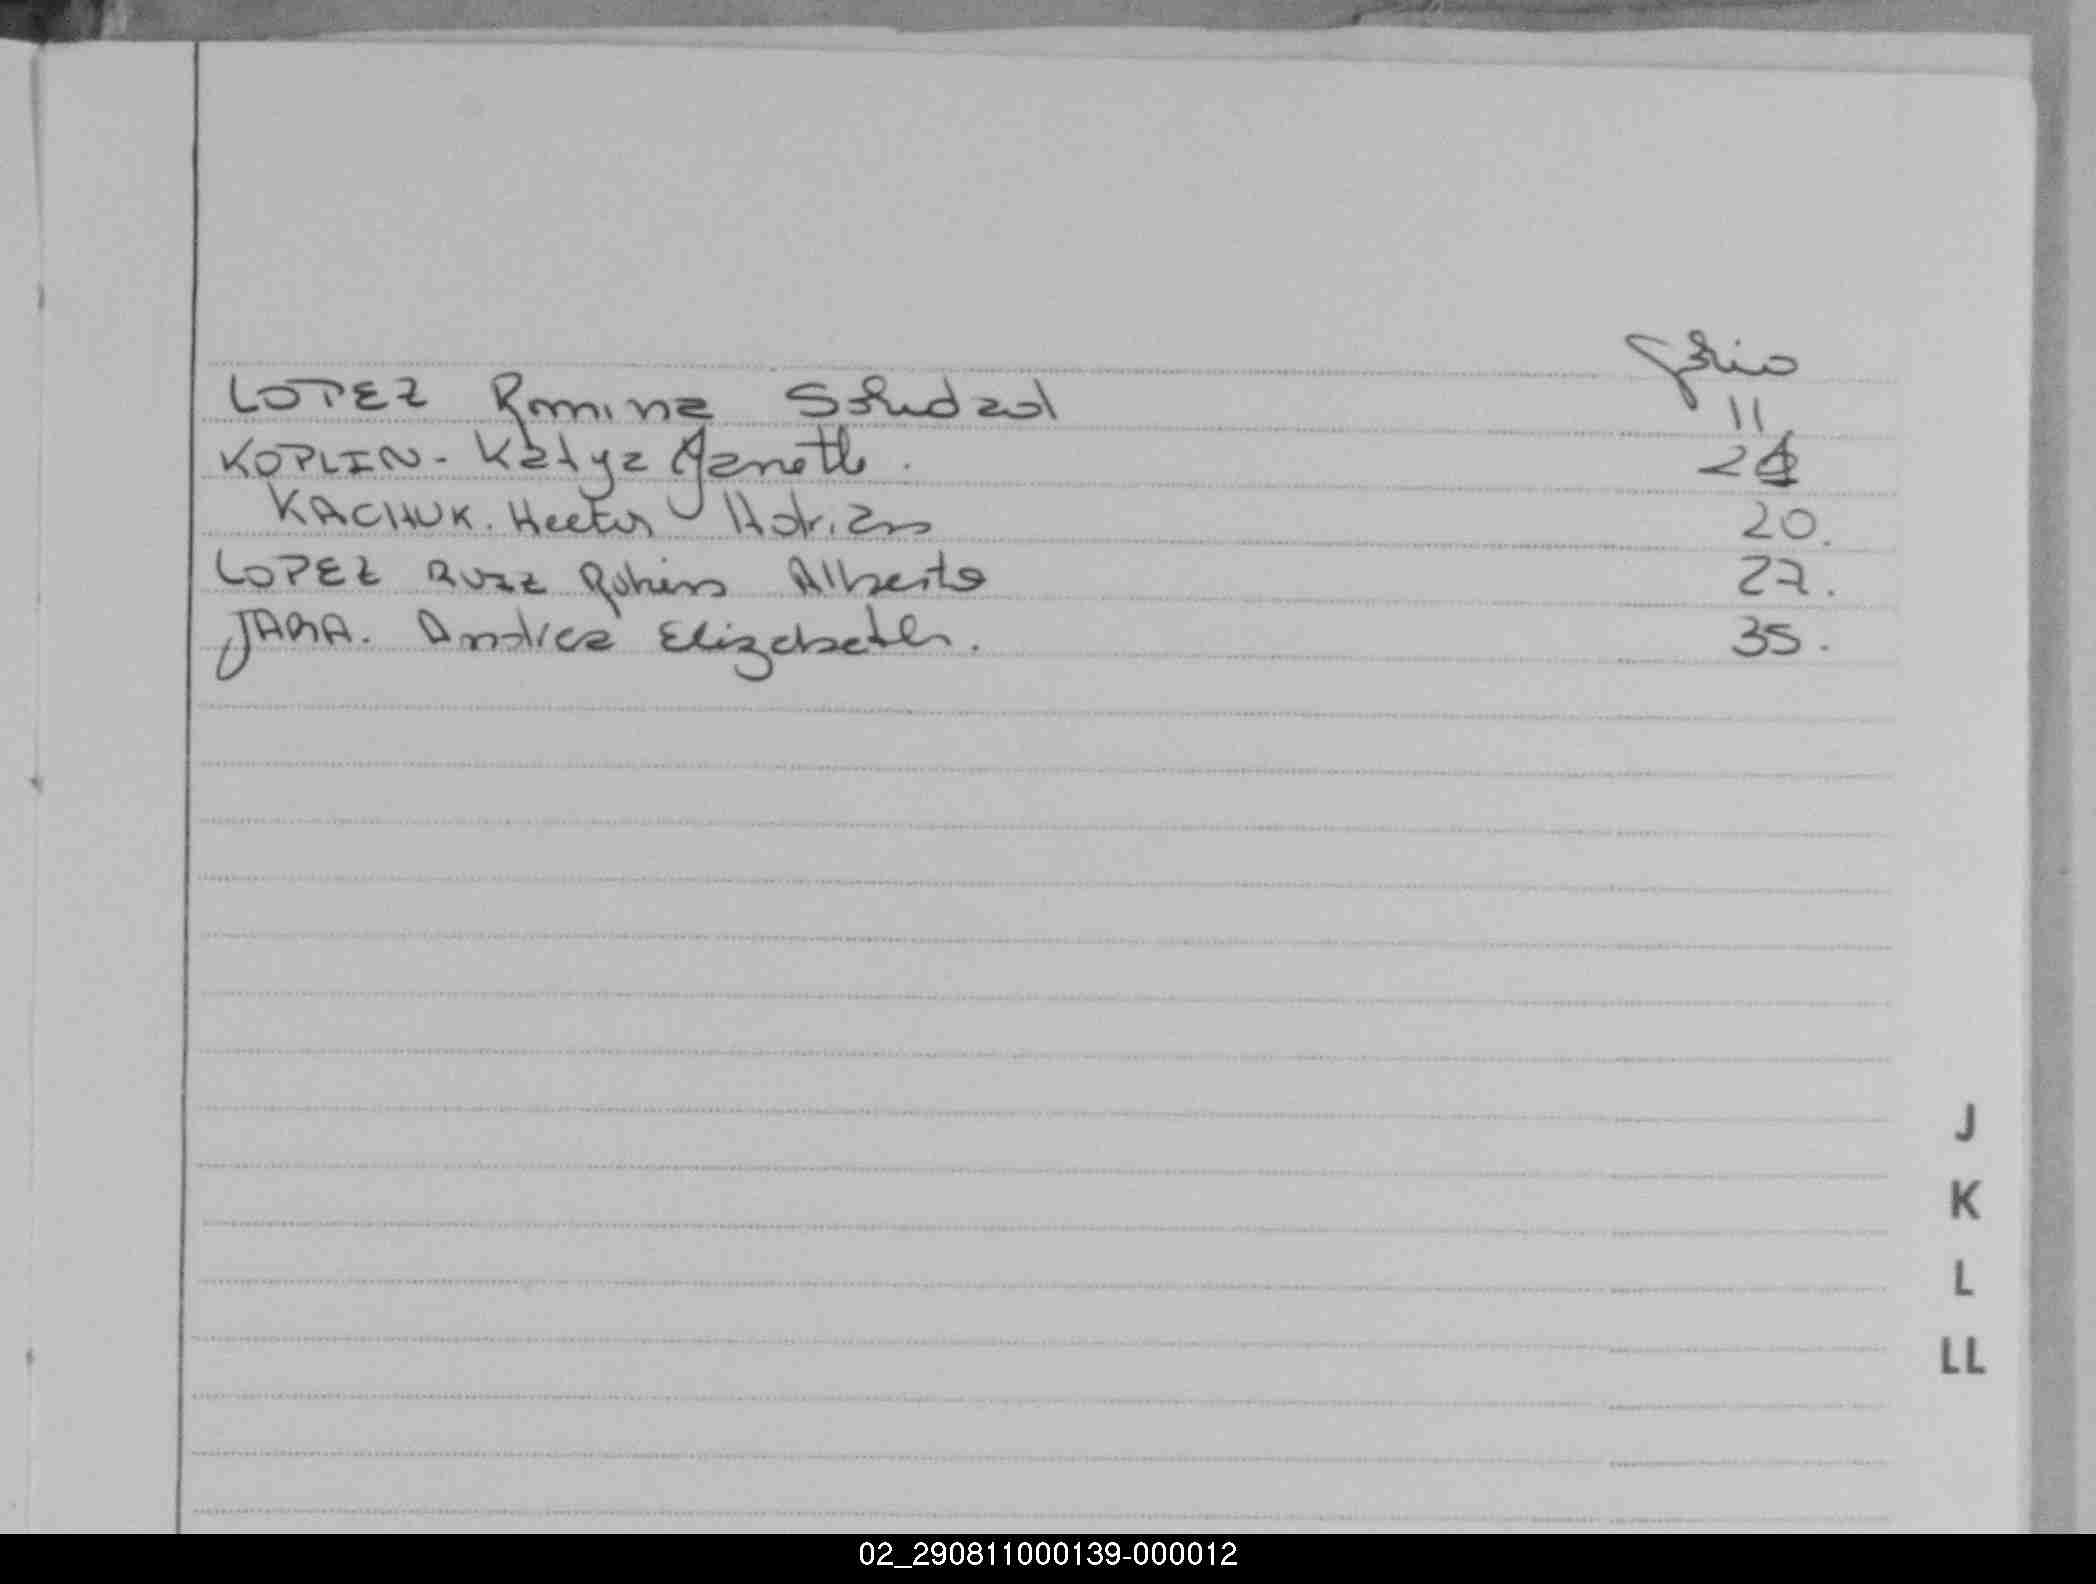 Folio
LOPEZ Romina Soledad 11
KOPLIN - Katya Janeth .
KACHUK. Hector Adrian 20.
LOPEZ RUIZ Ruben Alberto 27.
JARA. Andrea Elizabeth. 35.
J
K
L
LL
02_290811000139-000012